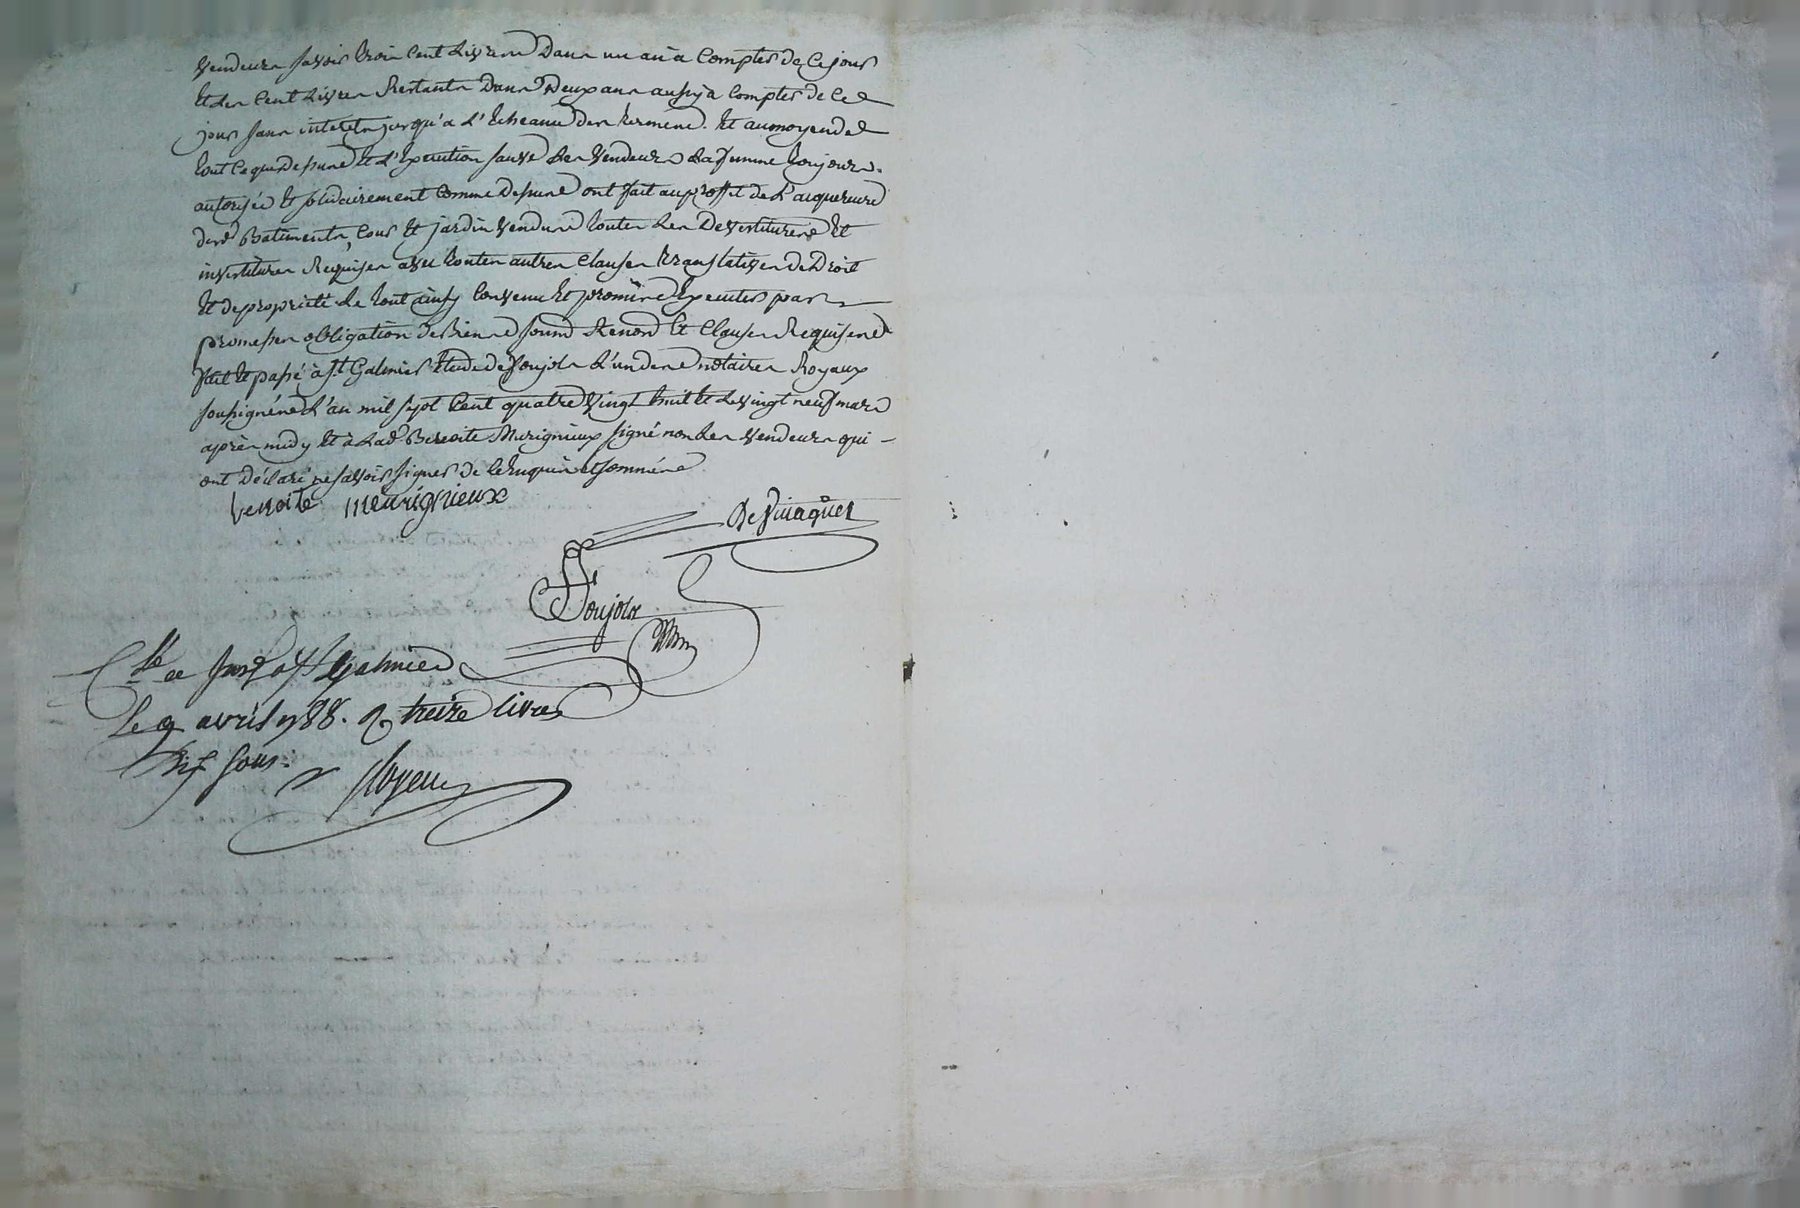 vendeurs savoir trois cent livres dans un an a compter de ce jour
et les cent livres restants dans deux ans aussy a compter de ce
jour sans interets jusqu'a l'echeance des termes. Et au moyen de
tout ce que dessus et l'execution sauve les vendeurs la femme toujours
autorisée et solidairement comme dessus ont fait au proffit de l'acquereure
desd Batiments, cour et jardin vendus toutes les devestitures et
investitures requises avec toutes autres clauses translatives de droit
et de proprieté le tout ainsy convenu et promis executer par
promesses obligation de biens soumd renond et clauses requises
fait et passé à St Galmier Etude de Ponjols l'un des notaires Royaux
soussignés l'an mil sept cent quatre vingt huit et le vingt neuf mars
après midy et à lad Benoite Murignieux signé non les vendeurs qui
ont déclaré ne savoir signer de ce enquis et sommés
benoite meurignieux
Ponjols
Cllé et a St Galmier
le 9 avril 1788. R treize livres
six sous.